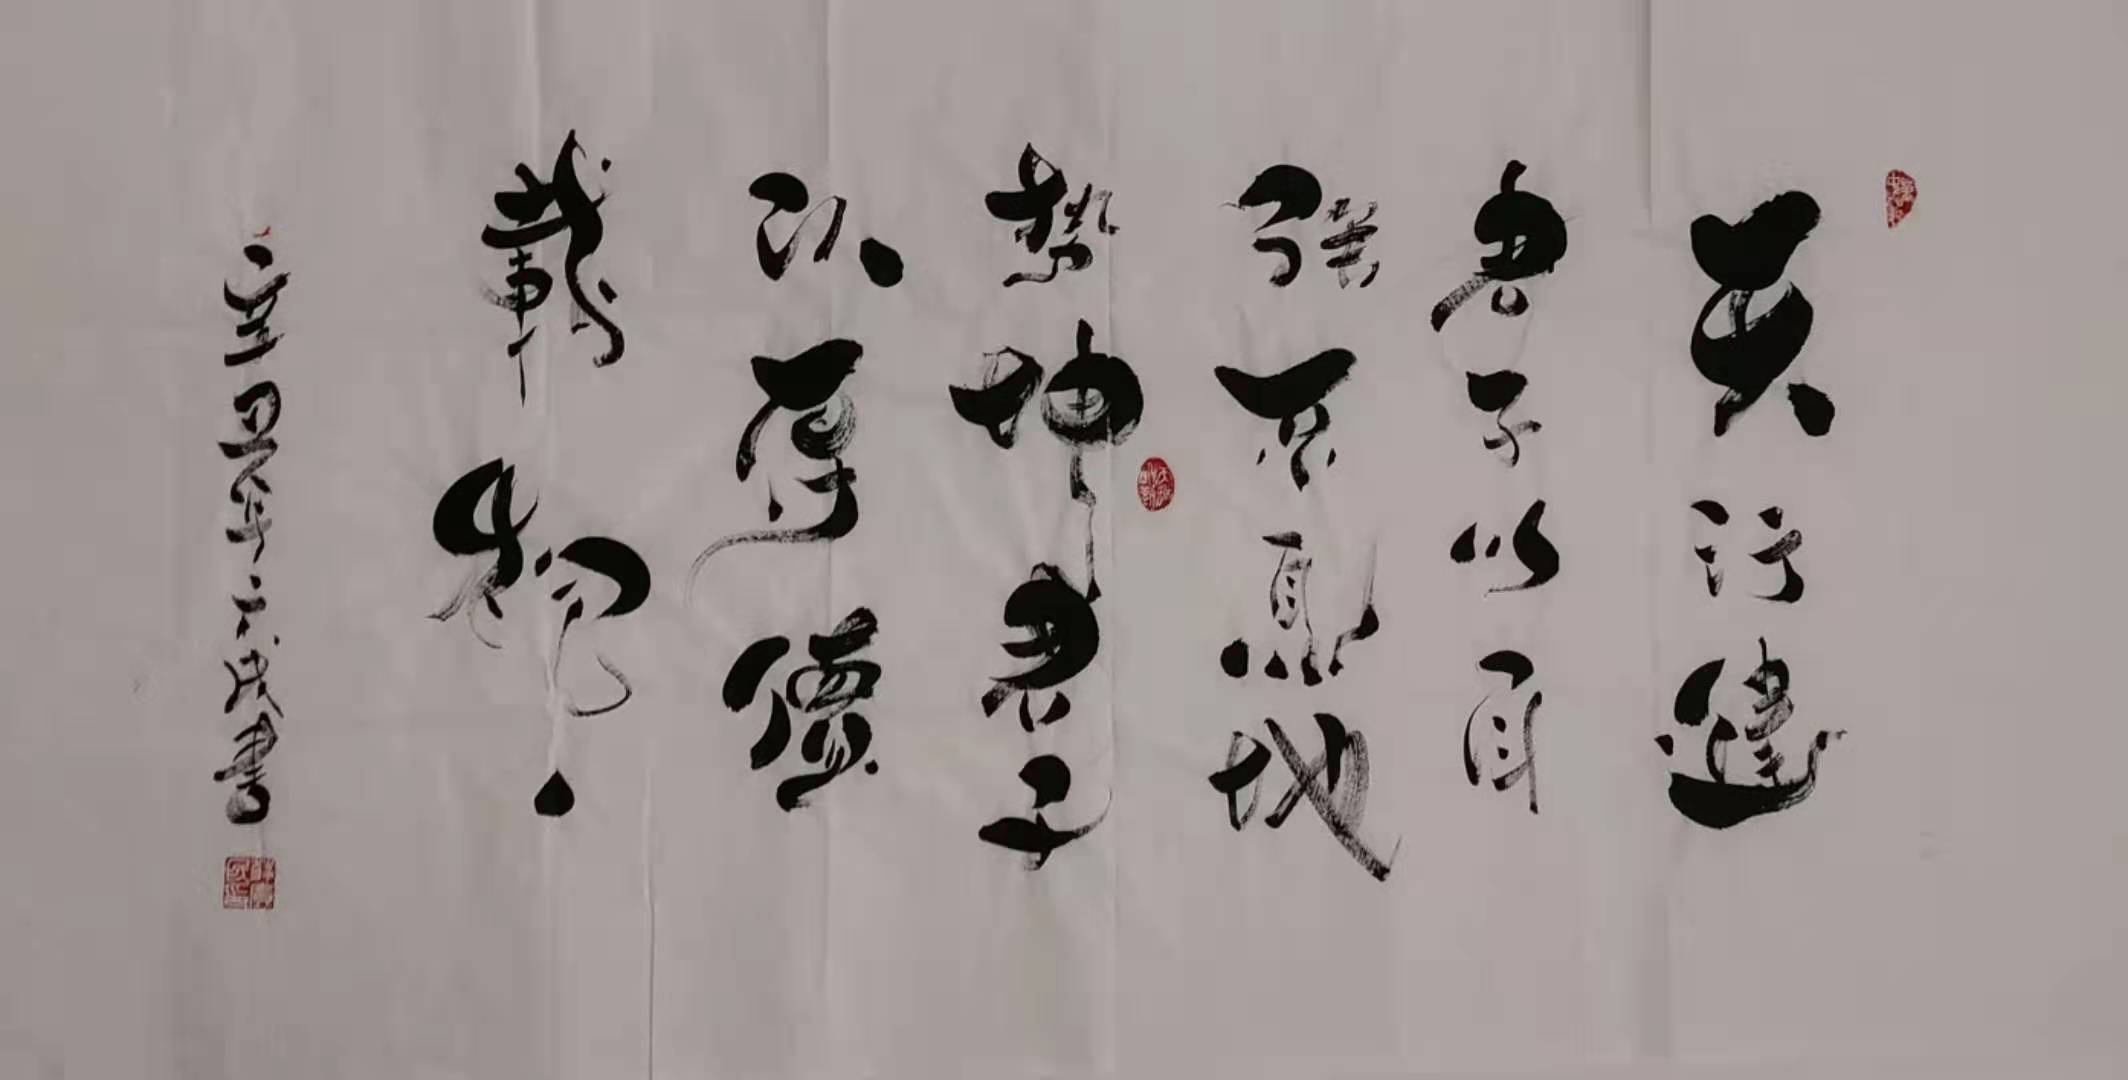 天行健
君子以自
强不息地
势坤君子
以厚德
載物
辛丑年成書